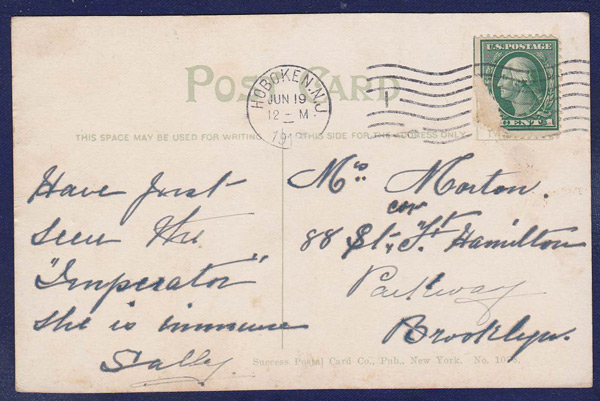 POST CARD
HOBOKEN, N.J.
JUN 19
12 - M
191
U.S. POSTAGE
CENT 1
THIS SPACE MAY BE USED FOR WRITING.
THIS SIDE FOR THE ADDRESS ONLY.
Have just
seen the
"Imperator"
she is immense
Sally.
Mrs. Morton.
cor
88 St., Ft. Hamilton
Parkway
Brooklyn.
Success Postal Card Co., Pub., New York. No.